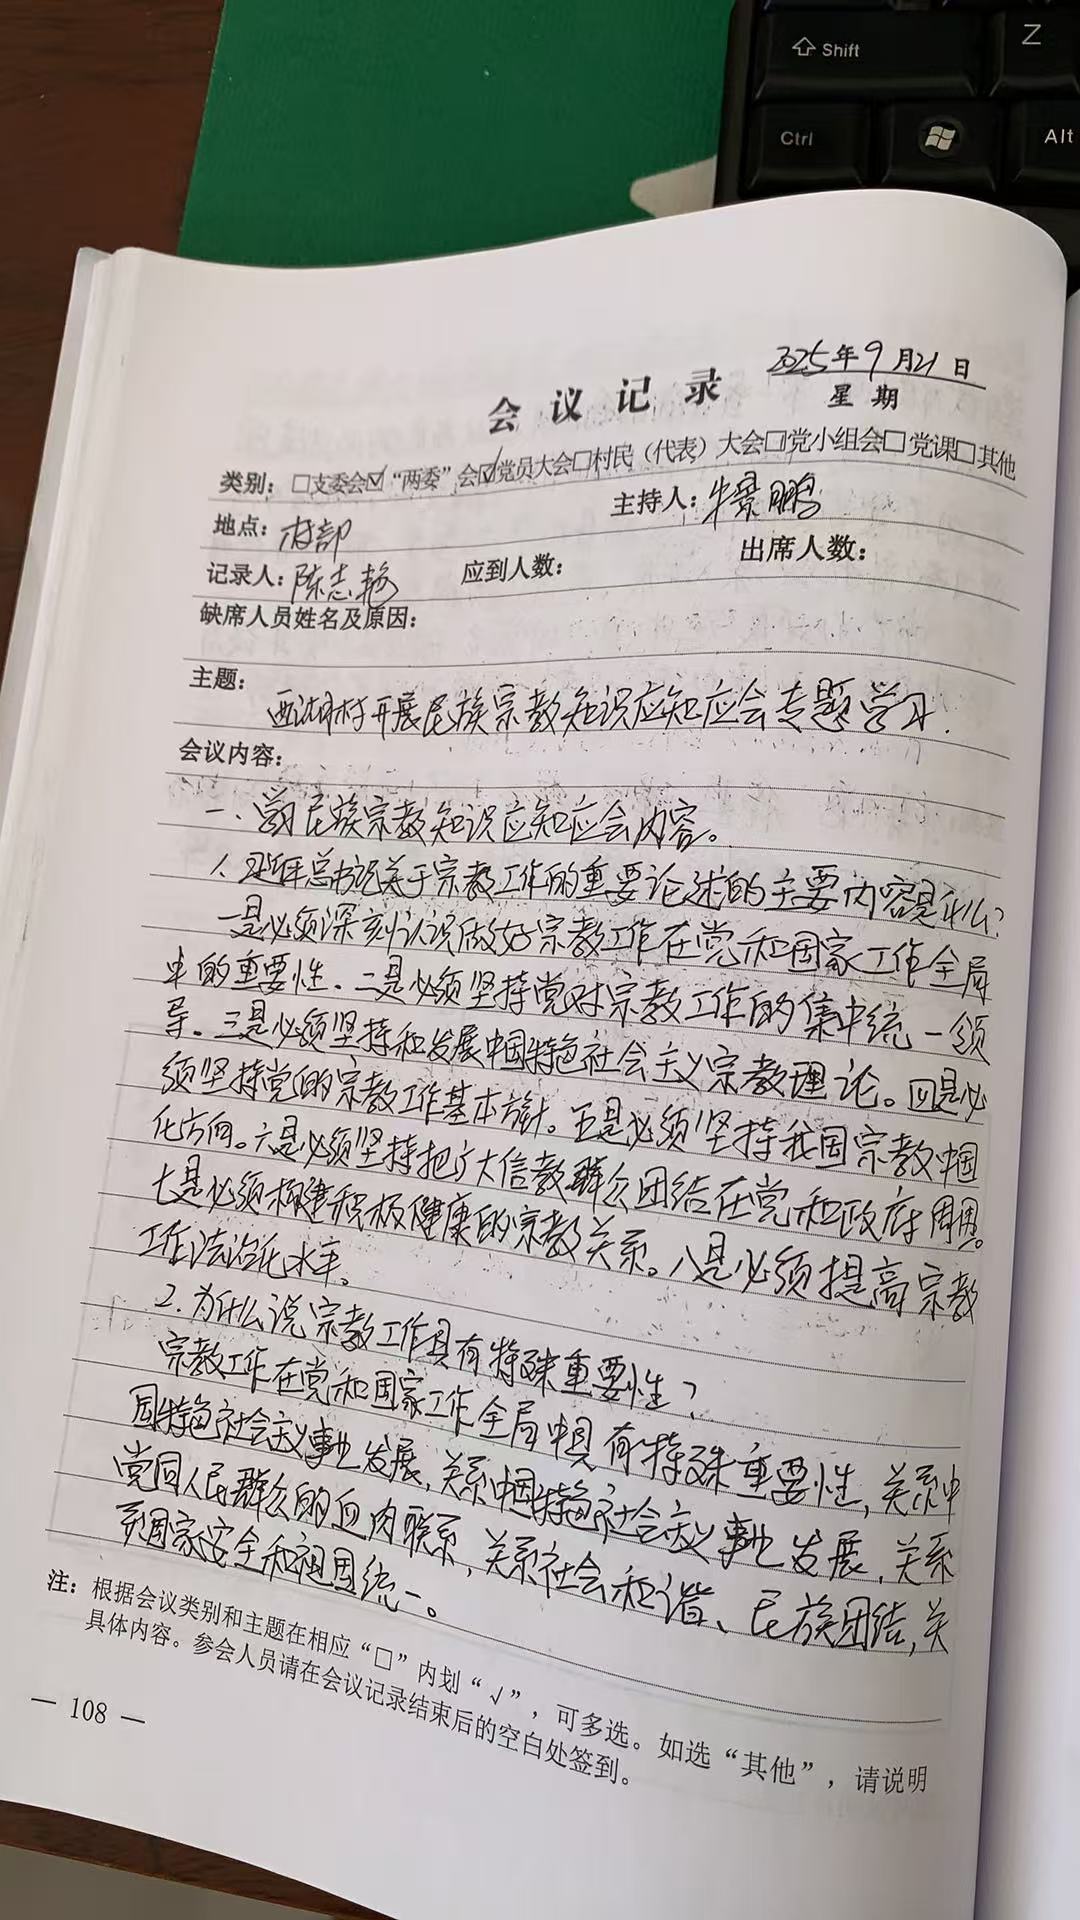 Shift
Z
Ctrl
Alt
2025年9月21日
会议记录
星期
类别：□支委会☑“两委”会☑党员大会□村民（代表）大会□党小组会□党课□其他
地点：村部
主持人：牛景鹏
记录人：陈志艳
应到人数：
出席人数：
缺席人员姓名及原因：
主题：
西湖村开展民族宗教知识应知应会专题学习.
会议内容：
一、学习民族宗教知识应知应会内容。
1、习近平总书记关于宗教工作的重要论述的主要内容是什么？
一是必须深刻认识做好宗教工作在党和国家工作全局
中的重要性、二是必须坚持党对宗教工作的集中统一领
导。三是必须坚持和发展中国特色社会主义宗教理论。四是必
须坚持党的宗教工作基本方针。五是必须坚持我国宗教中国
化方向。六是必须坚持把广大信教群众团结在党和政府周围。
七是必须构建积极健康的宗教关系。八是必须提高宗教
工作法治化水平。
2.为什么说宗教工作具有特殊重要性？
宗教工作在党和国家工作全局中具有特殊重要性,关系中
国特色社会主义事业发展,关系中国特色社会主义事业发展,关系
党同人民群众的血肉联系,关系社会和谐、民族团结,关
系国家安全和祖国统一。
注：根据会议类别和主题在相应“□”内划“√”，可多选。如选“其他”，请说明
具体内容。参会人员请在会议记录结束后的空白处签到。
— 108 —